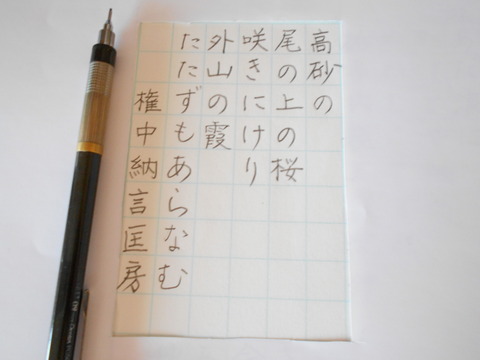 高砂の
尾の上の桜
咲きにけり
外山の霞
たたずもあらなむ
権中納言匡房